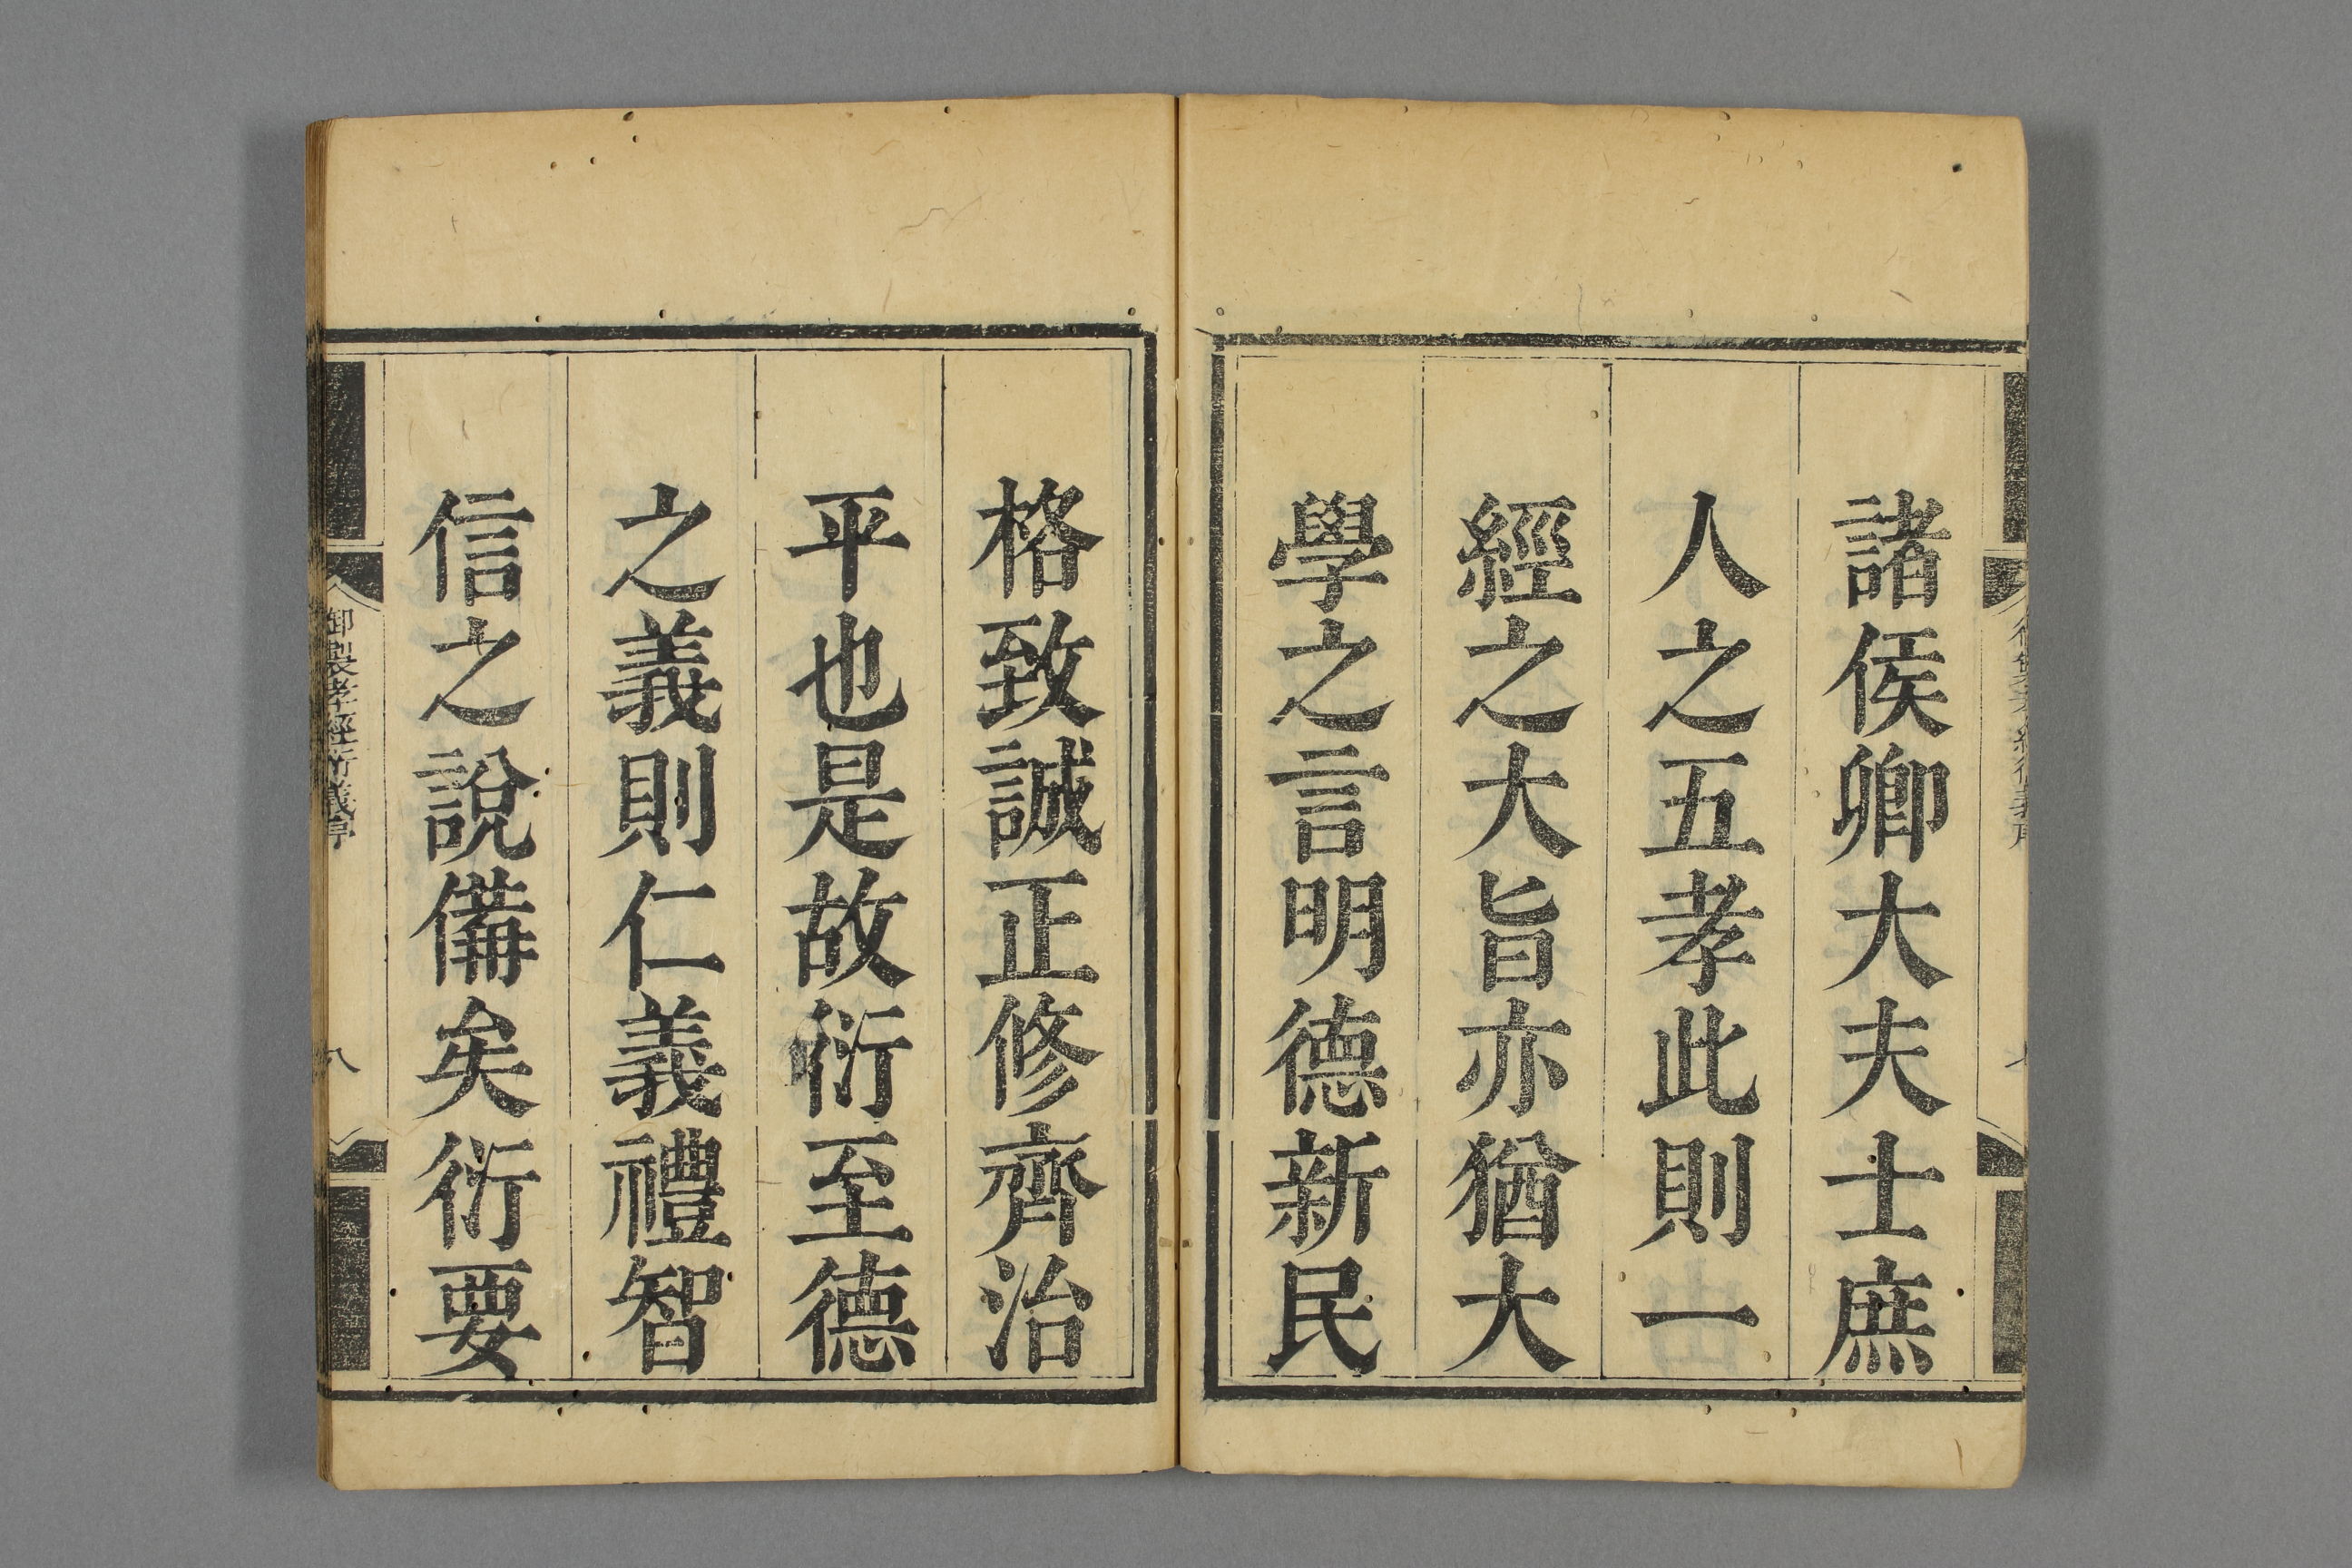 諸侯卿大夫士庶
人之五孝此則一
經之大旨亦猶大
學之言明德新民
格致誠正修齊治
平也是故衍至德
之義則仁義禮智
信之說備矣衍要
御製孝經衍義序
八